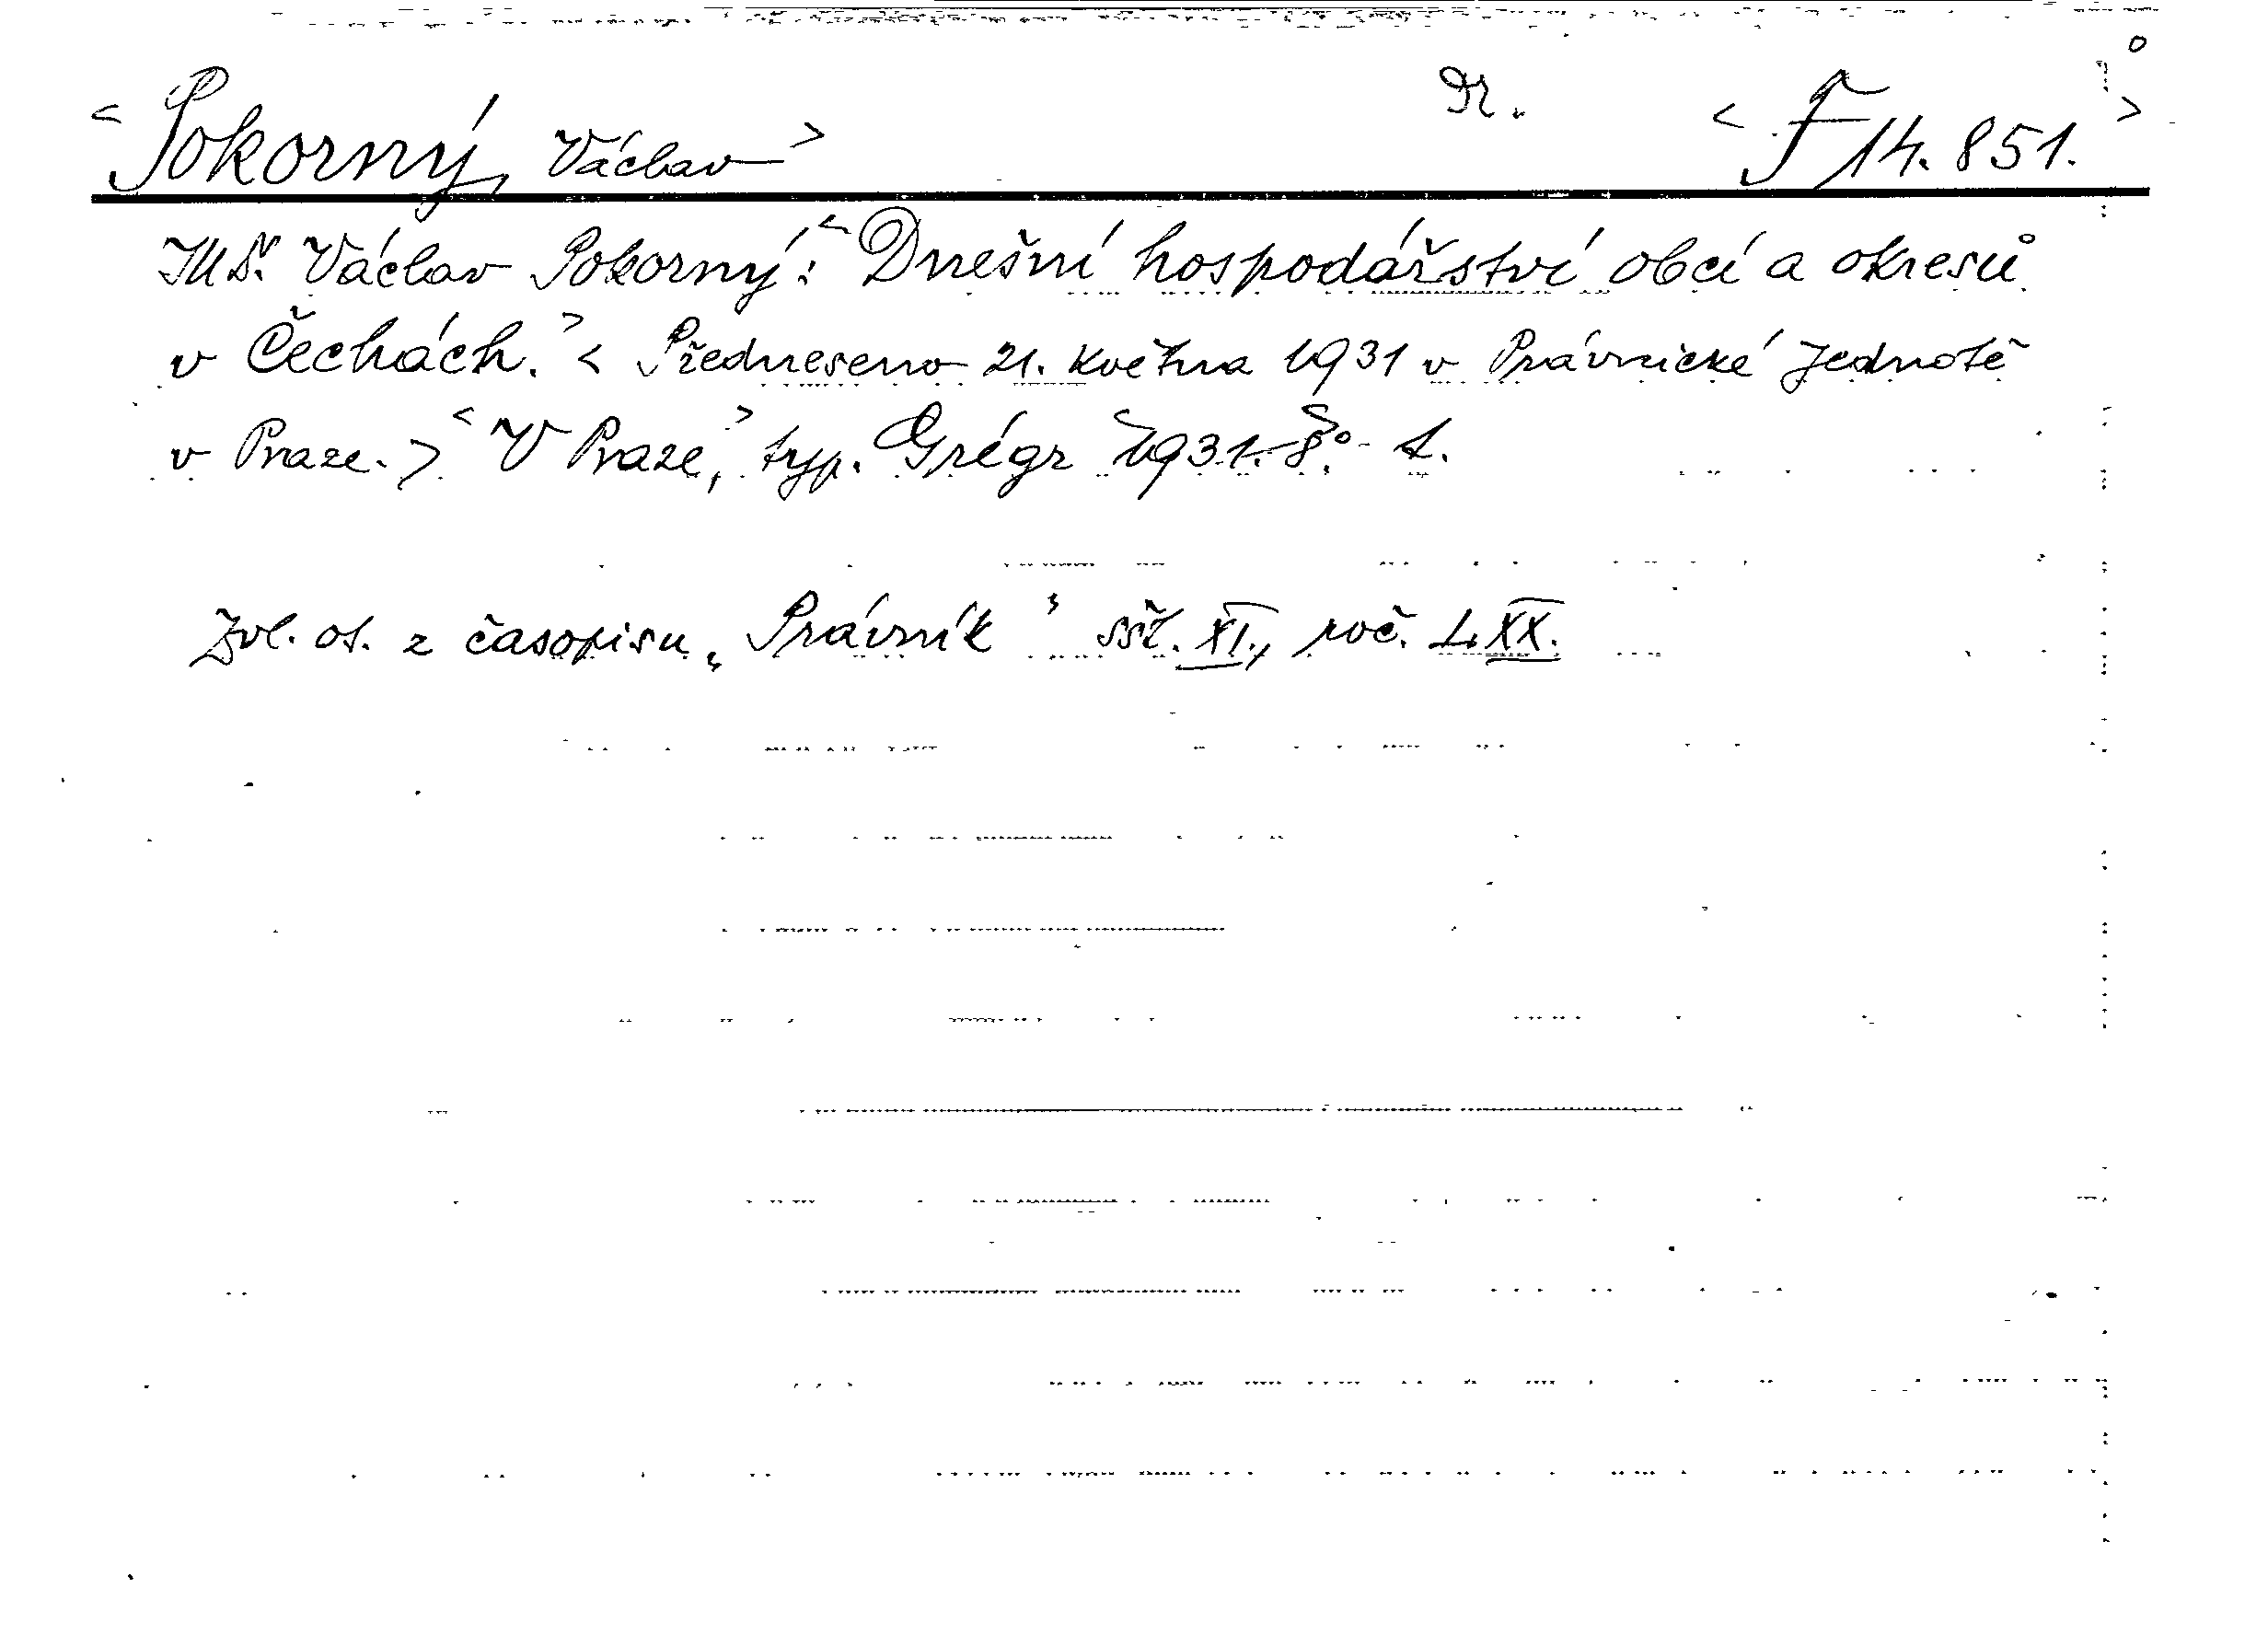 <Pokorný, Václav> <F 14.851.>
Václav Pokorný: <Dnešní hospodářství obcí a okresů
v Čechách.> < Předneseno 21. května 1931 v Právnické Jednotě
v Praze. > <V Praze,> typ. Grégr <1931.-8°.>
Zvl. ot. z časopisu „Právník" seš. XI., roč. LXX.